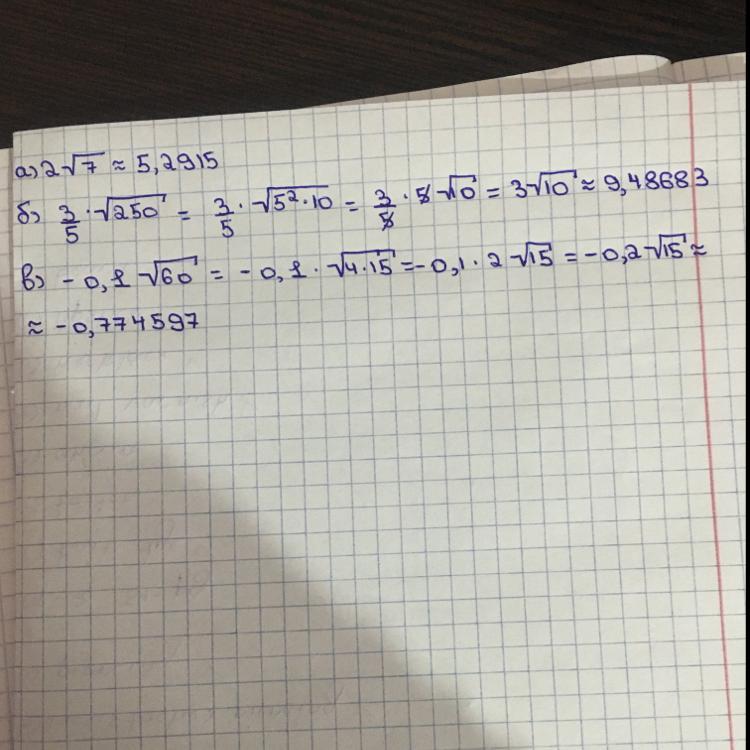 а) 2√7 ≈ 5,2915
б) 3/5 · √250 = 3/5 · √5² · 10 = 3/5 · 5√10 = 3√10 ≈ 9,48683
в) - 0,1 √60 = - 0,1 · √4·15 = - 0,1 · 2 √15 = - 0,2 √15 ≈
≈ - 0,774597